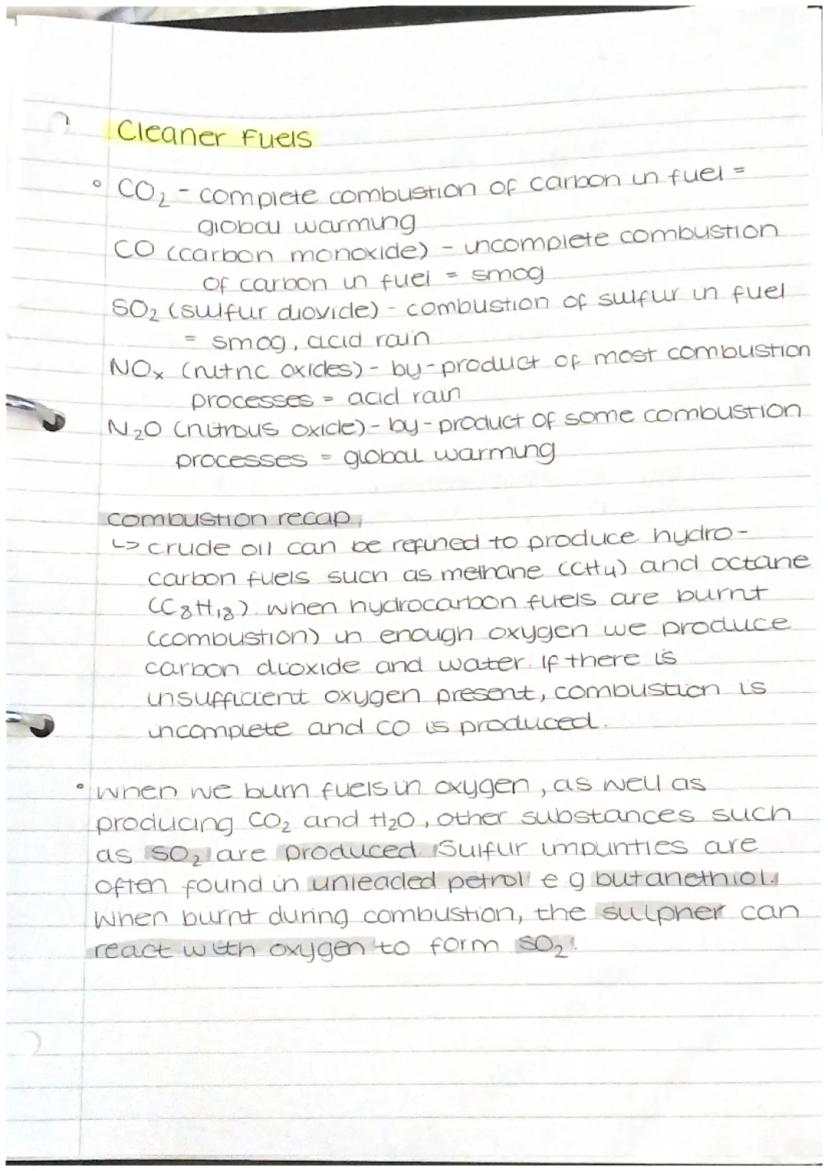 Cleaner Fuels
° CO₂ - complete combustion of carbon in fuel =
global warming
CO (carbon monoxide) - incomplete combustion
of carbon in fuel = smog
SO₂ (sulfur diovide) - combustion of sulfur in fuel
= smog, acid rain
NOx (nitric oxides) - by-product of most combustion
processes = acid rain
N₂O (nitrous oxide) - by-product of some combustion
processes = global warming
combustion recap
↳ crude oil can be refined to produce hydro-
carbon fuels such as methane (CH4) and octane
(C₈H₁₈). when hydrocarbon fuels are burnt
(combustion) in enough oxygen we produce
carbon dioxide and water. If there is
insufficient oxygen present, combustion is
incomplete and CO is produced.
° when we burn fuels in oxygen, as well as
producing CO₂ and H₂O, other substances such
as SO₂ are produced. Sulfur impurities are
often found in unleaded petrol e g butanethiol.
When burnt during combustion, the sulpher can
react with oxygen to form SO₂.